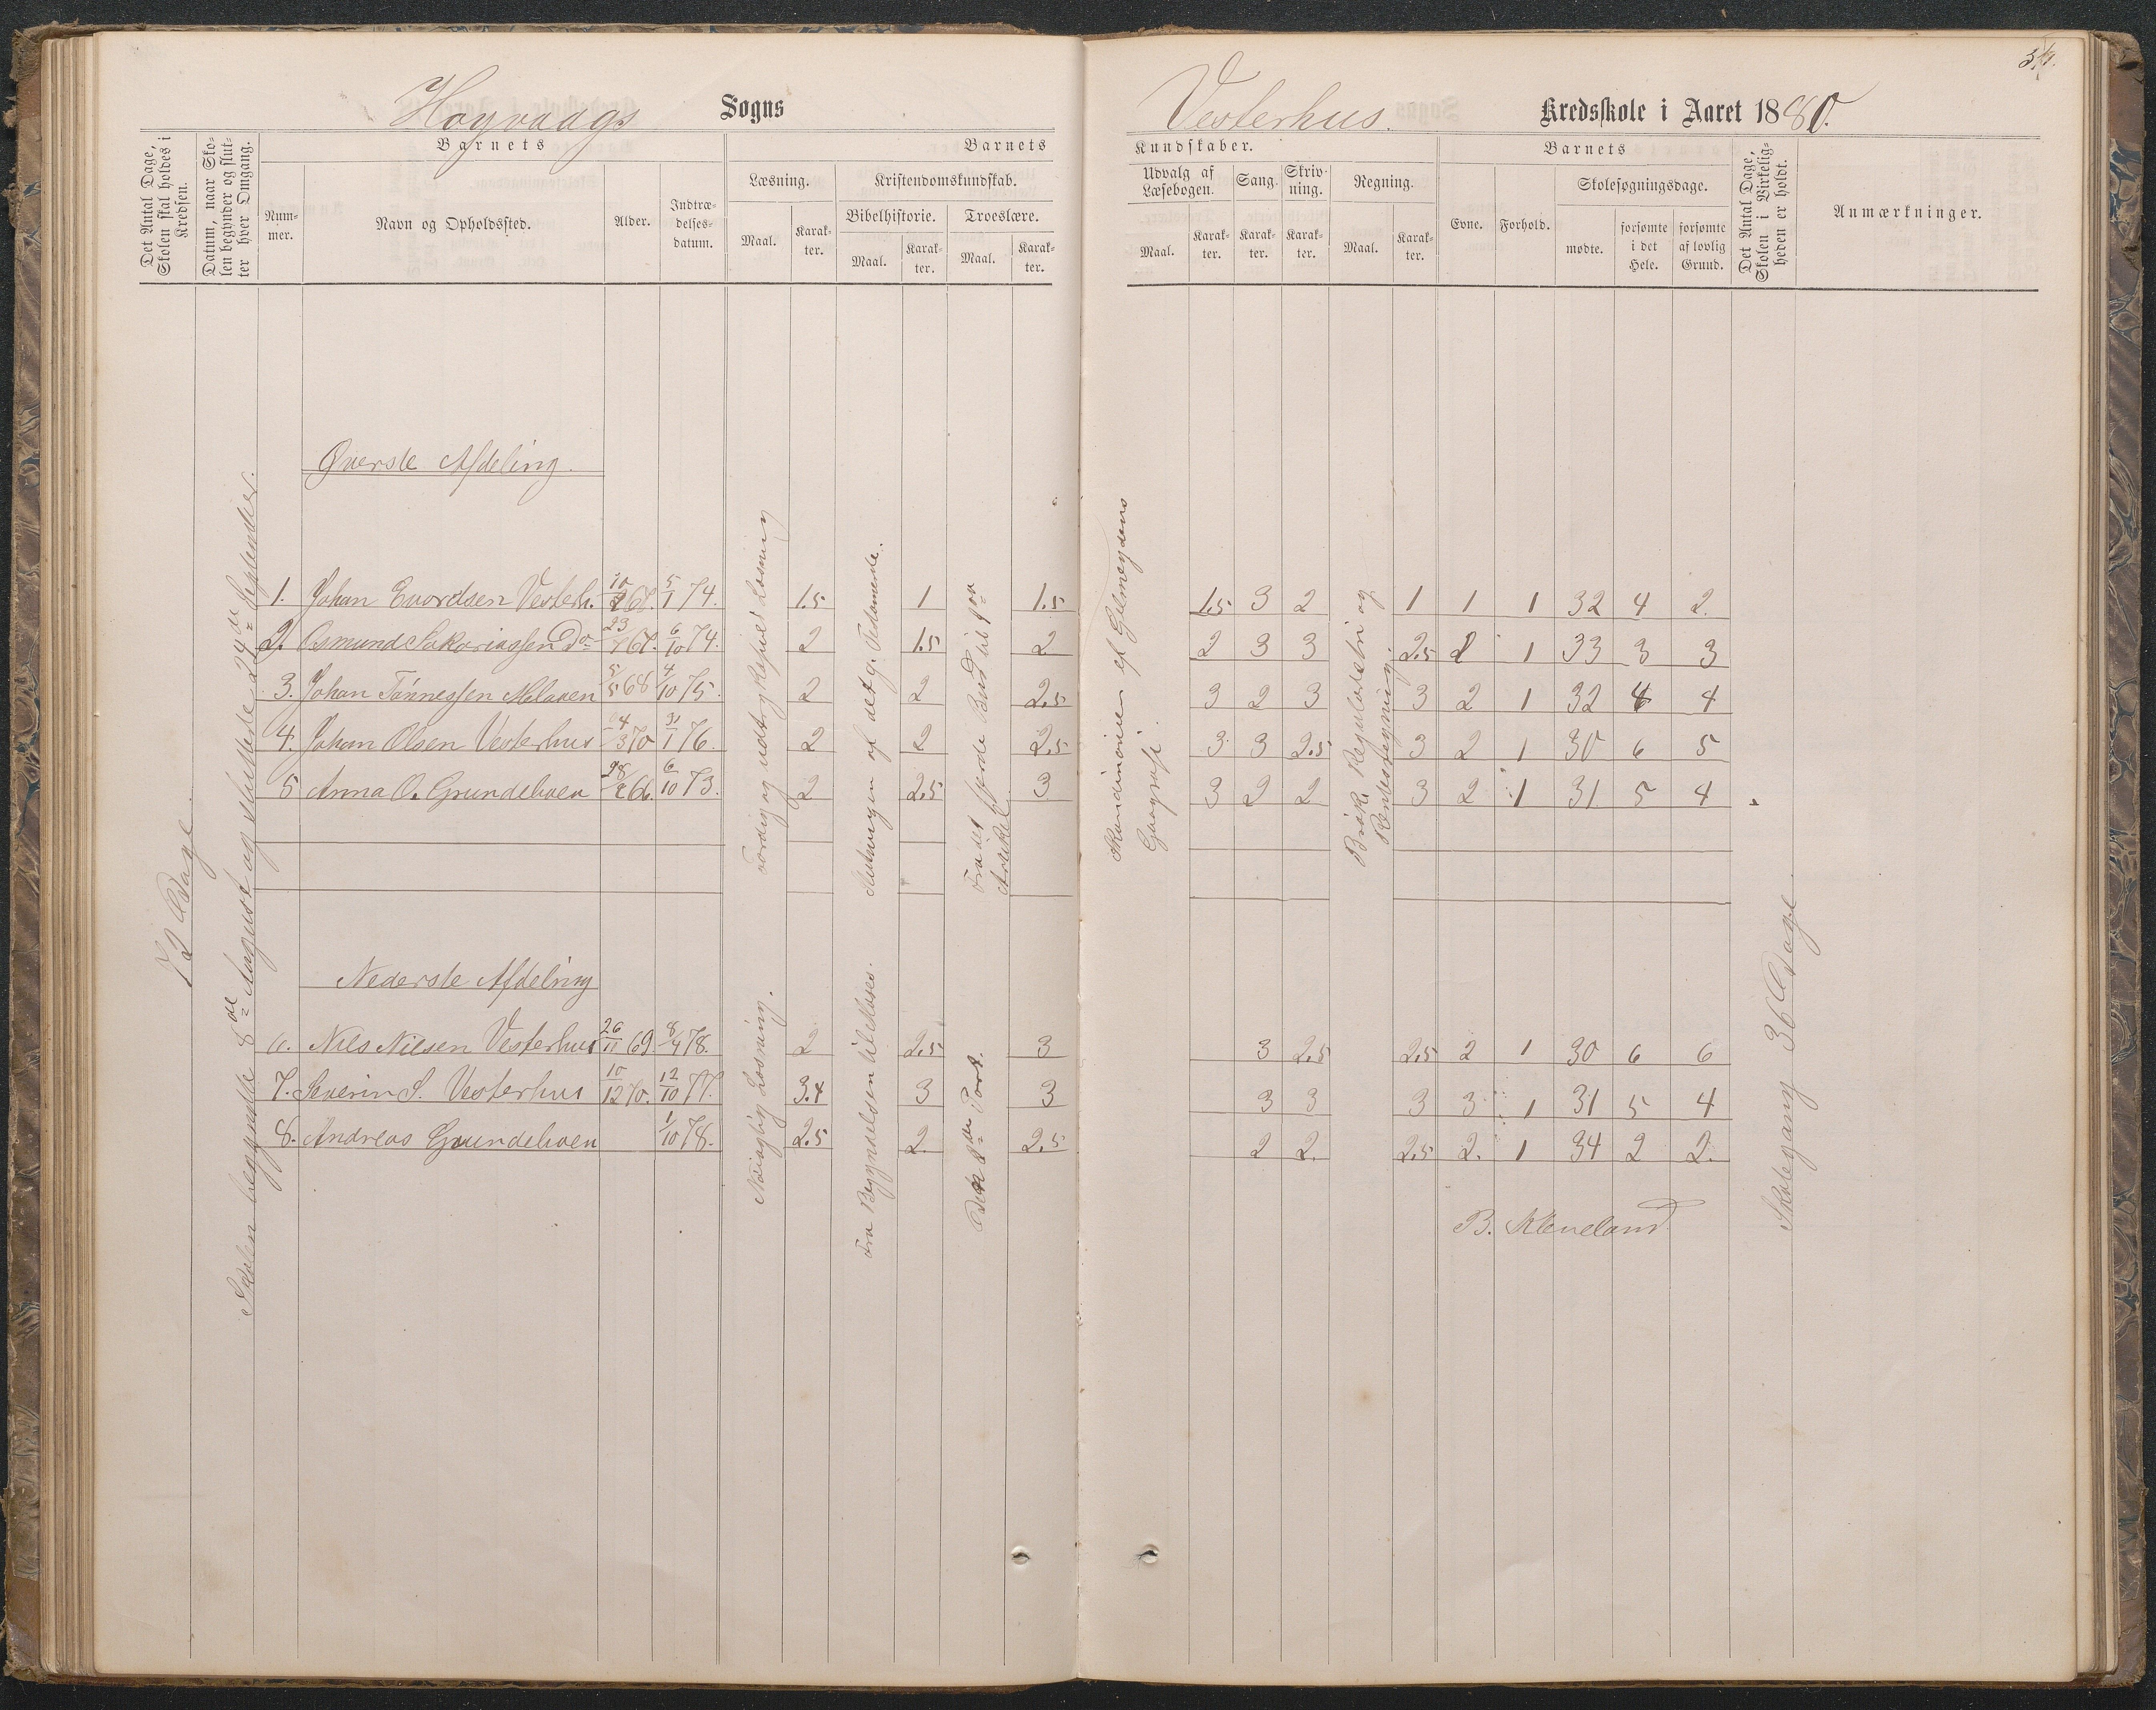 34.
Høyvaags Sogns
Vesterhus. Kredsskole i Aaret 1880.
Det Antal Dage, Skolen skal holdes i Kredsen.
Datum, naar Skolen begynder og slutter hver Omgang.
Barnets
Nummer.
Navn og Opholdssted.
Alder.
Indtrædelsesdatum.
Barnets
Læsning.
Maal.
Karakter.
Kristendomskundskab.
Bibelhistorie.
Maal.
Karakter.
Troeslære.
Maal.
Karakter.
Kundskaber.
Udvalg af Læsebogen.
Maal.
Karakter.
Sang.
Karakter.
Skrivning.
Karakter.
Regning.
Maal.
Karakter.
Barnets
Evne.
Forhold.
Skolesøgningsdage.
mødte.
forsømte i det Hele.
forsømte af lovlig Grund.
Det Antal Dage, Skolen i Virkeligheden er holdt.
Anmærkninger.
72 Dage
Skolen begyndte 8de August og sluttede 24de September.
Øverste Afdeling.
1. Johan Evordsen Vesterh. 68. 5/1 74. 1.5 1 1.5 1.5 3 2 1 1 1 32 4 2.
2. Osmund Sakariassen Do 23 68. 6/10 74. 2 1.5 2 2 3 3 2.5 1 33 3 3
3. Johan Tønnessen 5/5 68 4/10 75. 2 2 2.5 3 2 3 3 2 1 32 4 4
4. Johan Olsen Vesterhus 4/3 70 31/1 76. 2 2 2.5 3 3 2.5 3 2 1 30 6 5
5 Anna O. Grundehoen 28 66. 6/10 73. 2 2.5 3 3 2 2 3 2 1 31 5 4
Færdig og udtryksfuld Læsning
af det g. Testamente.
Fra det fjerde Bud til
Artikel
af
Geografi.
Brøk, Reguladetri og
Rentesregning.
Nederste Afdeling
6. Nils Nilsen Vesterhus 26/11 69. 8/4 78. 2 2.5 3 3 2.5 2.5 2 1 30 6 6
7. Severin S. Vesterhus 10/12 70. 12/10 77. 3.4 3 3 3 3 3 3 1 31 5 4
8. Andreas Grundehoen 1/10 78. 2.5 2. 2.5 2 2. 2.5 2. 1 34 2 2.
Nøiagtig Læsning.
Fra Begyndelsen til Moses.
Part.
Skolegang 36 Dage
B. Kleveland